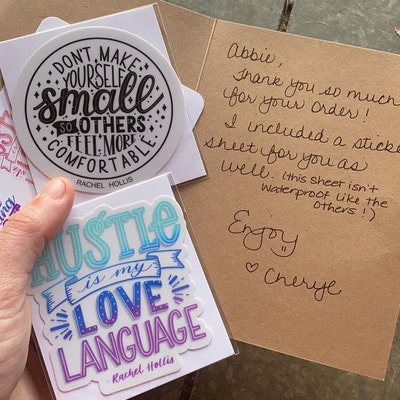 DON'T MAKE
YOURSELF
small
SO OTHERS
FEEL MORE
COMFORTABLE
RACHEL HOLLIS
HUSTLE
is my
LOVE
LANGUAGE
-Rachel Hollis
Abbie,
Thank you so much
for your order!
I included a sticke
sheet for you as
well. (this sheet isn't
waterproof like the
others!)
Enjoy
♡ Cheryl